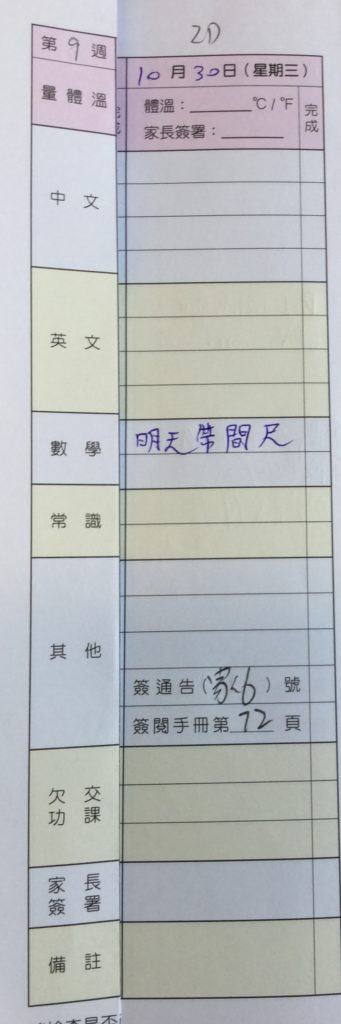 2D
第9週
10月30日(星期三)
量體溫
體溫：______℃/℉
家長簽署：______
完成
中文
英文
數學
明天帶間尺
常識
其他
簽通告(家46)號
簽閱手冊第72頁
欠交功課
家長簽署
備註